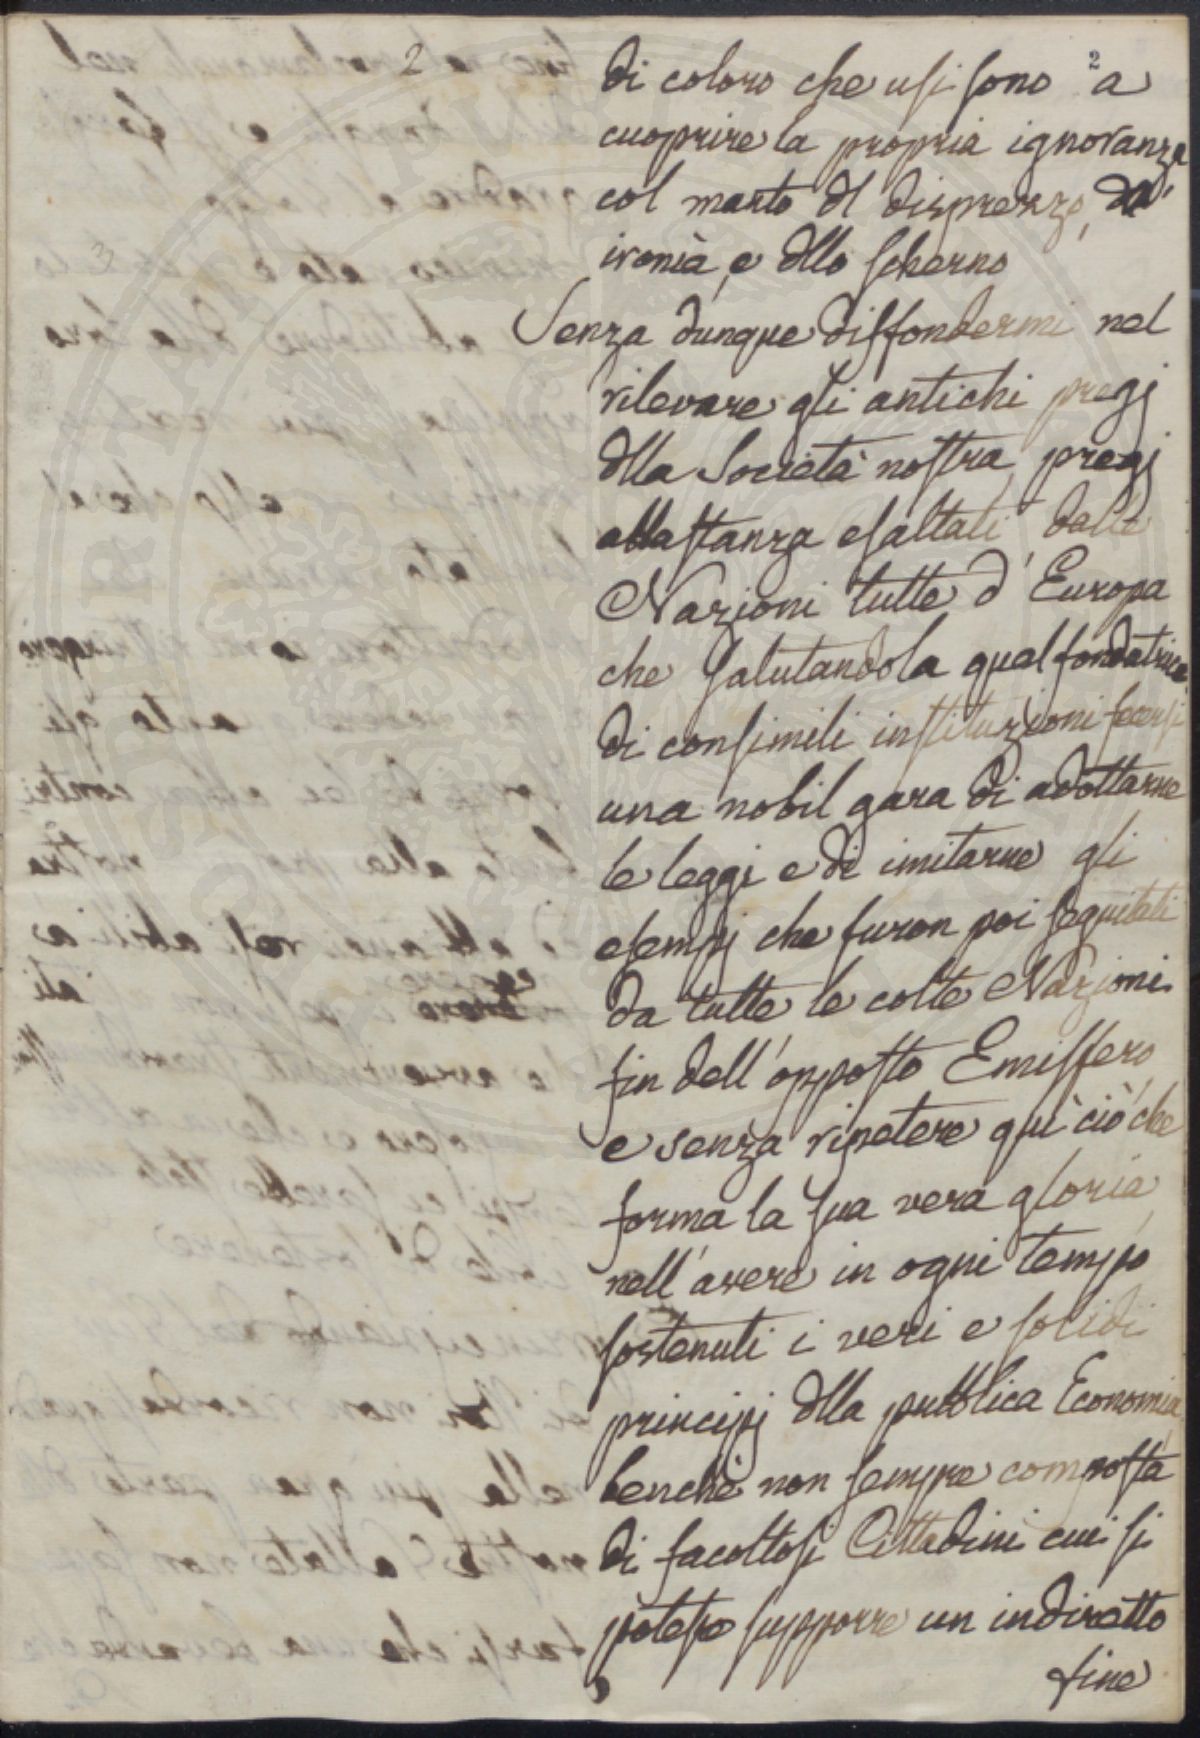 2
2
di coloro che usi sono a
cuoprire la propria ignoranza
col manto dl disprezzo, da
ironia, e dllo scherno
Senza dunque diffondermi nel
rilevare gli antichi pregj
dlla Società nostra, pregj
abbastanza esaltati dalle
Nazioni tutte d'Europa
che salutandola qual fondatrice
di consimili instituzioni fecersi
una nobil gara di adottarne
le leggi e di imitarne gli
esempj che furon poi seguitati
da tutte le colte Nazioni
fin dell'opposto Emisfero
e senza ripetere quì ciò che
forma la sua vera gloria
nell'avere in ogni tempo
sostenuti i veri e solidi
principj dlla pubblica Economia
benchè non sempre composta
di facoltosi Cittadini cui si
potesse supporre un indiretto
fine